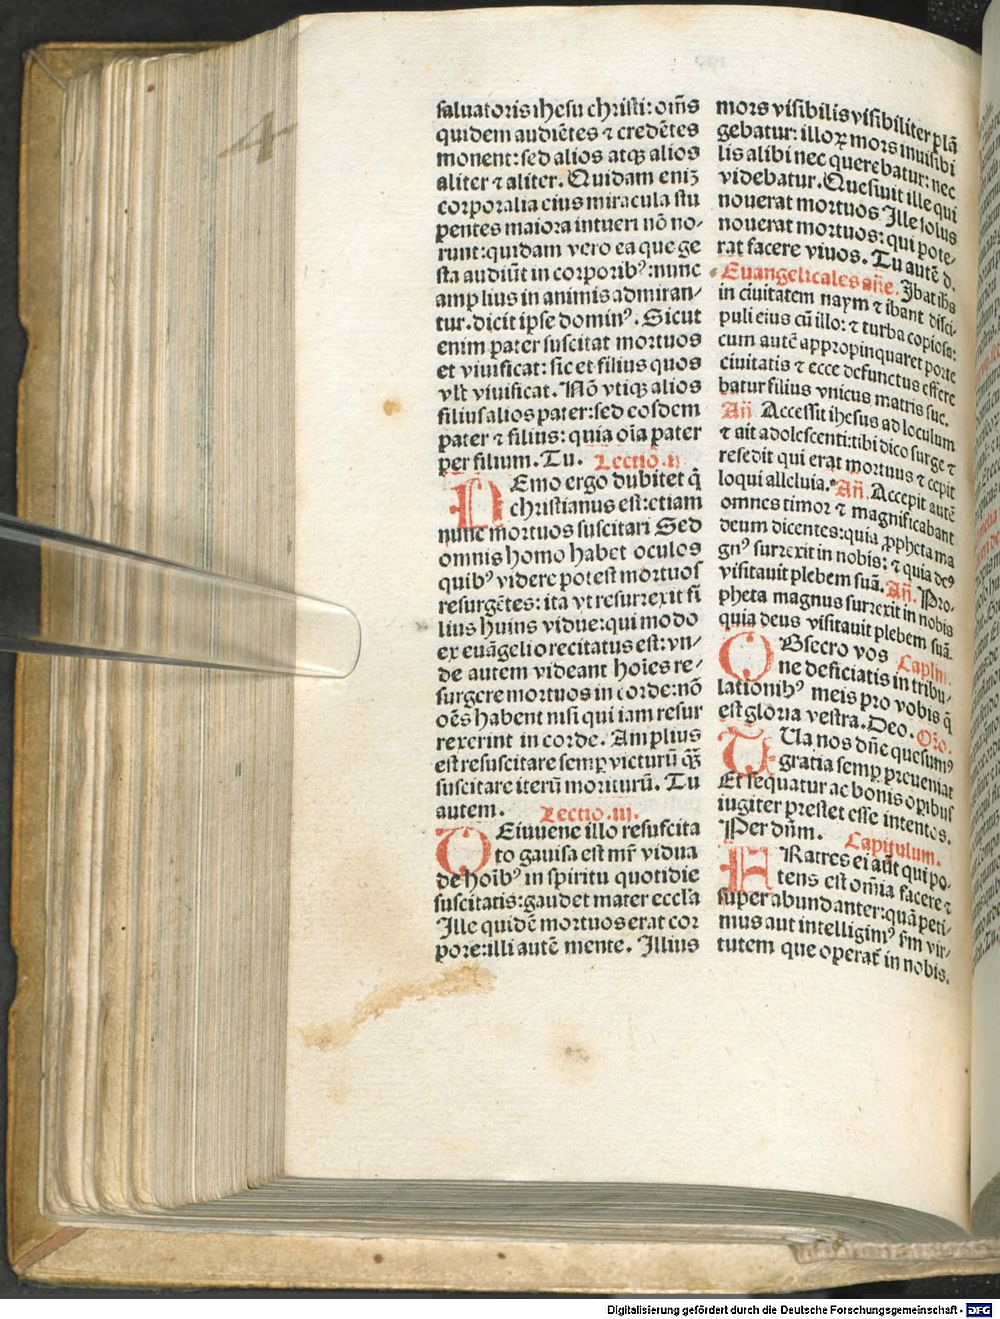 4
saluatoris ihesu christi: om̄s
quidem audiētes ⁊ credētes
monent: sed alios atqꝫ alios
aliter ⁊ aliter. Quidam eniꝫ
corporalia eius miracula stu
pentes maiora intueri nō no-
runt: quidam vero ea que ge
sta audiūt in corporibꝰ: nunc
amplius in animis admiran-
tur. dicit ipse dominꝰ. Sicut
enim pater suscitat mortuos
et viuificat: sic et filius quos
vlt̄ viuificat. Nō vtiqꝫ alios
filius alios pater: sed eosdem
pater ⁊ filius: quia oīa pater
per filium. Tu. Lectio .ij.
NEmo ergo dubitet q̄
christianus est: etiam
nunc mortuos suscitari Sed
omnis homo habet oculos
quibꝰ videre potest mortuos
resurgētes: ita vt resurrexit fi
lius huius vidue: qui modo
ex euāgelio recitatus est: vn-
de autem videant hoīes re-
surgere mortuos in corde: nō
oēs habent nisi qui iam resur
rexerint in corde. Amplius
est resuscitare semꝑ victurū qꝫ̄
suscitare iterū moriturū. Tu
autem. Lectio .iij.
DEiuuene illo resuscita
to gauisa est mr̄ vidua
de hoībꝰ in spiritu quotidie
suscitatis: gaudet mater eccl̄a
Ille quidē mortuus erat cor
pore: illi autē mente. Illius
mors visibilis visibiliter plā
gebatur: illoꝝ mors inuisibi
lis alibi nec querebatur: nec
videbatur. Quesiuit ille qui
nouerat mortuos Ille solus
nouerat mortuos: qui pote-
rat facere viuos. Tu autē d.
Euangelicales añe. Ibat ihs
in ciuitatem naym ⁊ ibant disci-
puli eius cū illo: ⁊ turba copiosa:
cum autē appropinquaret porte
ciuitatis ⁊ ecce defunctus effere
batur filius vnicus matris sue.
Añ Accessit ihesus ad loculum
⁊ ait adolescenti: tibi dico surge ⁊
resedit qui erat mortuus ⁊ cepit
loqui alleluia. Añ. Accepit autē
omnes timor ⁊ magnificabant
deum dicentes: quia ꝓpheta ma
gnꝰ surrexit in nobis: ⁊ quia deꝰ
visitauit plebem suā. Añ. Pro-
pheta magnus surrexit in nobis
quia deus visitauit plebem suā.
OBsecro vos Capłm.
ne deficiatis in tribu-
lationibꝰ meis pro vobis q̄
est gloria vestra. Deo. Oro.
TUa nos dn̄e quesumꝰ
gratia semꝑ preueniat
Et sequatur ac bonis oꝑibus
iugiter prestet esse intentos.
Per dn̄m. Capitulum.
FRatres ei aūt qui po-
tens est om̄ia facere ⁊
super abundanter: quā peti-
mus aut intelligimꝰ sm̄ vir-
tutem que operat̄ in nobis.
Digitalisierung gefördert durch die Deutsche Forschungsgemeinschaft - DFG